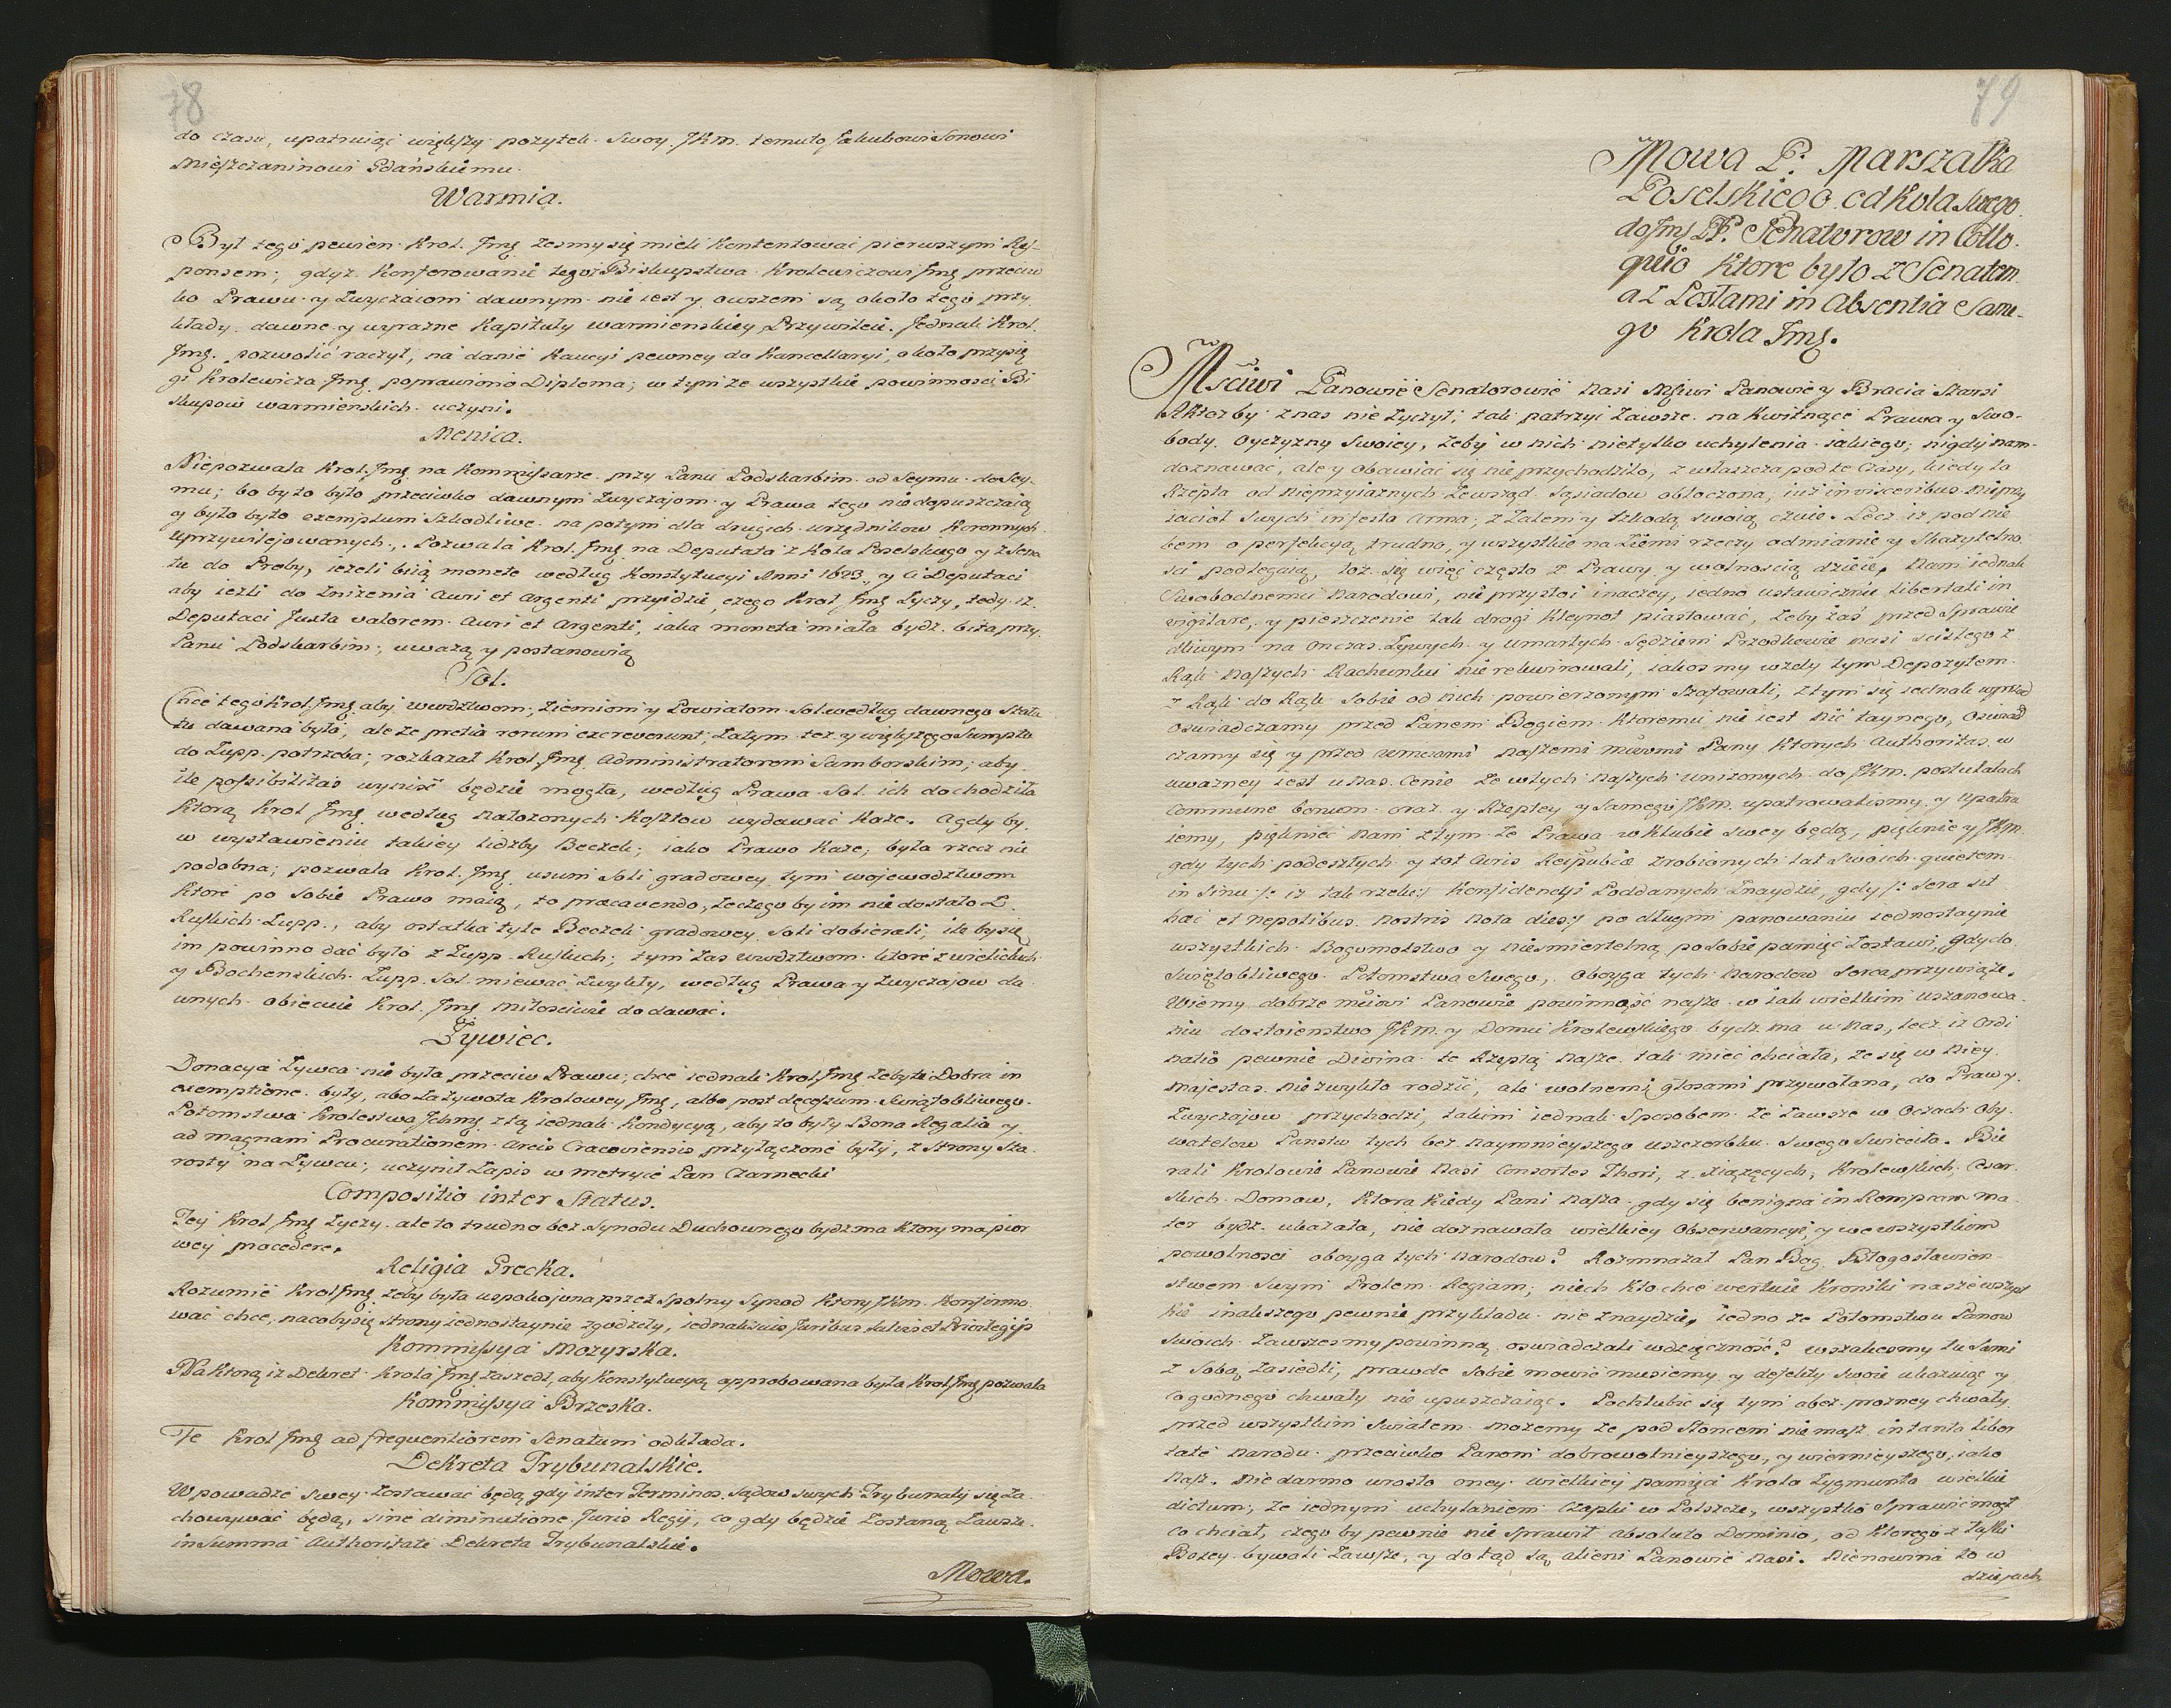 78
do czasu, upatruiąc większy pożytek Swoy JKm. temuto Jakubowi Sonowi
Mieszczaninowi Gdańskiemu.
Warmia.
Był tego pewien Krol. Jmę żesmy się mieli Kontentować pierwszym Res-
ponsem; gdyż Konferowanie tegoż Biskupstwa Krolewiczowi Jmę przeciw
ko Prawu y Zwyczaiom dawnym nie iest y owszem są około tego przy
kłady dawne y wyrazne Kapituły warmienskiey Przywileie. Jednak Krol.
Jmę. pozwolić raczył, na danie Kaucyi pewney do Kancellaryi, około przysię
gi Krolewicza Jmę poprawiono Diploma; w tym że wszystkie powinnosci Bi
skupow warmienskich uczyni.
Menica.
Niepozwala Krol. Jmę na Kommissarze przy Panu Podskarbim od Seymu do Sey-
mu; bo by to było przeciwko dawnym Zwyczajom y Prawa tego niedopuszczaią
y było by to exemplum Szkodliwe na potym dla drugich urzędnikow Koronnych
uprzywilejowanych. Pozwala Krol. Jmę na Deputata z Koła Poselskiego y z Sena
tu do Proby, ieżeli biią monete według Konstytucyi Anni 1623, y Ci Deputaci
aby ieżli do Zniżenia Auri et Argenti przyidzie, czego Krol Jmę Życzy, tedy iż
Deputaci Juxta valorem Auri et Argenti, iaka moneta miała bydź bita przy
Panu Podskarbim, uważą y postanowią
Sol.
Chce tego Krol. Jmę aby wwdztwom, Ziemiom y Powiatom Sol według dawnego Statu
tu dawana była, ale że pretia rerum excreverunt, Zatym też y większego Sumptu
do Zupp. potrzeba; rozkazał Krol Jmę Administratorem Samborskim, aby
ile possibilitas wynisć będzie mogła, według Prawa Sol ich dochodziła
Ktorą Krol Jmę według Nałożonych Kosztow wydawać Każe. A gdy by
w wystawieniu takiey lidzby Beczek, iako Prawo Każe, była rzecz nie
podobna; pozwala Krol. Jmę usum Soli gradowey tym wojewodztwom
Ktore po Sobie Prawo maią, to praecavendo, żeczego by im nie dostało Z
Ruskich Zupp, aby ostatka tyle Beczek gradowey Soli dobierali, ile by się
im powinno dać było z Zupp Ruskich; tym zas wwdztwom ktore z wielickich
y Bochenskich Zupp. Sol miewać Zwykły, według Prawa y Zwyczajow da
wnych obiecuie Krol. Jmę miłosciwie do dawać.
Żywiec.
Donacya Żywca nie była przeciw Prawu; chce iednak Krol. Jmę żeby te Dobra in
exemptione były, abo Za żywota Krolowey Jmę, albo post decessum Swiątobliwego
Potomstwa Krolestwa Ichmę z tą iednak Kondycyą, aby to były Bona Regalia y
ad magnam Procurationem Arcis Cracoviensis przyłączone były, z Strony Sta
rosty na Żywcu, uczynił Zapis w metryce Pan Czarnecki
Compositio inter Status.
Tey Krol Jmę Życzy ale to trudno bez Synodu Duchownego bydź ma Ktory ma pier
wey procedere.
Religia Grecka.
Rozumie Krol Jmę żeby była uspokojona przez Spolny Synod Ktory JKm. Konfirmo
wać chce, na coby się strony iednostaynie zgodziły, iednak suis Juribus Salvis et Privilegijs
Kommissya Mozyrska.
Na Ktorą iż Dekret Krola Jmę zaszedł, aby Konstytucyą approbowana była Krol Jmę pozwala
Kommissya Brzeska.
Te Krol Jmę ad frequentiorem Senatum odkłada.
Dekreta Trybunalskie.
W powadze swey Zostawać będą, gdy inter Terminos Sądow swych Trybunały się Za
chowywać będą, sine diminutione Juris Regij, co gdy będzie Zostaną Zawsze
in Summa Authoritate Dekreta Trybunalskie.
Mowa.
79
Mowa P. Marszałka
Poselskiego od Koła swego
do Jmę PP. Senatorow in Collo-
quio Ktore było z Senatem
a z Posłami in Absentia Same-
go Krola Jmę.
Msciwi Panowie Senatorowie Nasi Msciwi Panowie y Bracia Starsi
A ktoż by z nas nie życzył, tak patrzyć Zawsze na Kwitnące Prawa y Swo-
body Oyczyzny Swoiey, żeby w nich nietylko uchylenia iakiego, nigdy nam
doznawać, ale y Obawiać się nie przychodziło, z właszcza pod te Czasy, kiedy ta
Rzepta od Nieprzyiaznych Zewsząd Sąsiadow obtoczona, iuż in visceribus Nieprzy
iacioł Swych infesta Arma, z Żalem y szkodą swoią czuie. Lecz iż pod nie
bem o perfekcyą trudno, y wszystkie na Ziemi rzeczy odmianie y Skazytelno
sci podlegaią, toż się więc często z Prawy y wolnoscią dzieie. Nam iednak
Swobodnemu Narodowi, nie przystoi inaczey, iedno ustawicznie libertati in
vigilare, y pieszczenie tak drogi Kleynot piastować, żeby zaś przed Sprawie
dliwym na onczas Żywych y umarłych Sędziem Przodkowie nasi scisłego z
Rąk Naszych Rachunku nie rekwirowali, iakosmy wżdy tym Depozytem
z Rąk do Rąk Sobie od nich powierzonym Szafowali, z tym się iednak wprzod
oswiadczamy przed Panem Bogiem Ktoremu nie iest nic taynego, Oswiad
czamy się y przed wmciami Naszemi mciwmi Pany Ktorych Authoritas w
uważney iest u Nas Cenie że w tych Naszych uniżonych do JKm. postulatach
Commune bonum oraz y Rzeptey y Samego JKm. upatrowalismy y Upatru
iemy, pięknieć Nam z tym że Prawa w Klubie swey będą, pięknie y JKm.
gdy tych podeszłych y tot Curis Reipublicae zrobionych lat Swoich quietem
in Sinu /: iż tak rzekę:/ Konfidencyi Poddanych Znaydzie, gdy /: Sera sit
haec et Nepotibus Nostris Nota dies:/ po długim panowaniu iednostaynie
wszystkich Bogomolstwo y niesmiertelną po sobie pamięć Zostawi, gdy do
Swiętobliwego Potomstwa Swego, Oboyga tych Narodow Serca przywiąże.
Wiemy dobrze mciwi Panowie powinność nasze w iak wielkim uszanowa
niu dostoienstwo JKm. y Domu Krolewskiego bydź ma u Nas, lecz iż Ordi
natio pewnie Divina te Rzeptą Nasze tak mieć chciała, że się w Niey
Majestas nie zwykło rodzić, ale wolnemi głosami przywołana, do Praw y
Zwyczajow przychodzi, takim iednak Sposobem że Zawsze w Oczach Oby
watelow Panstw tych bez Naymnieyszego uszczerbku Swego Swieciła. Bie
rali Krolowie Panowie Nasi Consortes Thori, z Xiązęcych, Krolewskich, Cesar
skich Domow, Ktora kiedy Pani Nasza gdy się benigna in Rempcam ma
ter bydź ukazała, nie doznawała wielkiey Obserwancyi y we wszystkiem
powolnosci oboyga tych Narodow? Rozmnażał Pan Bog Błogosławien-
stwem Swym Prolem Regiam, niech Kto chce wertuie Kroniki nasze wszyst
kie inakszego pewnie przykładu nie Znaydzie, iedno że Potomstwu Panow
Swoich Zawszesmy powinną oswiadczali wdzięczność? wszakesmy tu Sami
z Sobą Zasiedli, prawde Sobie mowić musiemy y defekty Swoie ukazuiąc y
co godnego chwały nie upuszczaiąc. Pochlubić się tym abez prozney chwały
przed wszystkim Swiatem możemy że pod Słoncem nie masz in tanta liber
tate Narodu przeciwko Panom dobrowolnieyszego, y wiernieyszego, iako
Nasz. Nie darmo urosło oney wielkiey pamięci Krola Zygmunta wielkie
dictum, że iednym uchyleniem Czapki w Polszcze, wszystko Sprawić mogł
co chciał, czego by pewnie nie sprawił absoluto Dominio, od Ktorego z Łaski
Bożey bywali Zawsze, y dotąd są alieni Panowie Nasi. Nienowina to w
dziejach